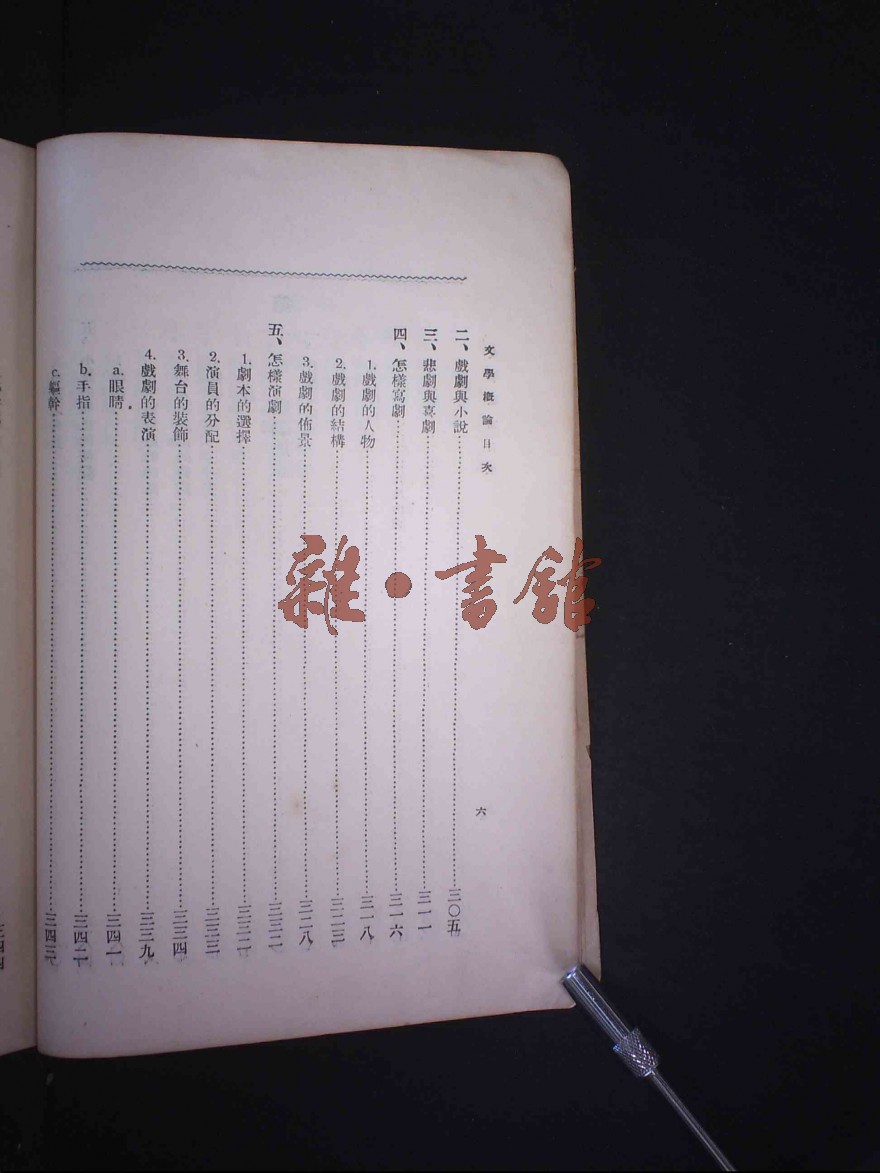 文學概論目次
六
二、戲劇與小說……三〇五
三、悲劇與喜劇……三一一
四、怎樣寫劇……三一六
1.戲劇的人物……三一八
2.戲劇的結構……三二三
3.戲劇的佈景……三二八
五、怎樣演劇……三三二
1.劇本的選擇……三三二
2.演員的分配……三三三
3.舞台的裝飾……三三四
4.戲劇的表演……三三九
a.眼睛……三四一
b.手指……三四二
c.軀幹……三四三
雜·書館